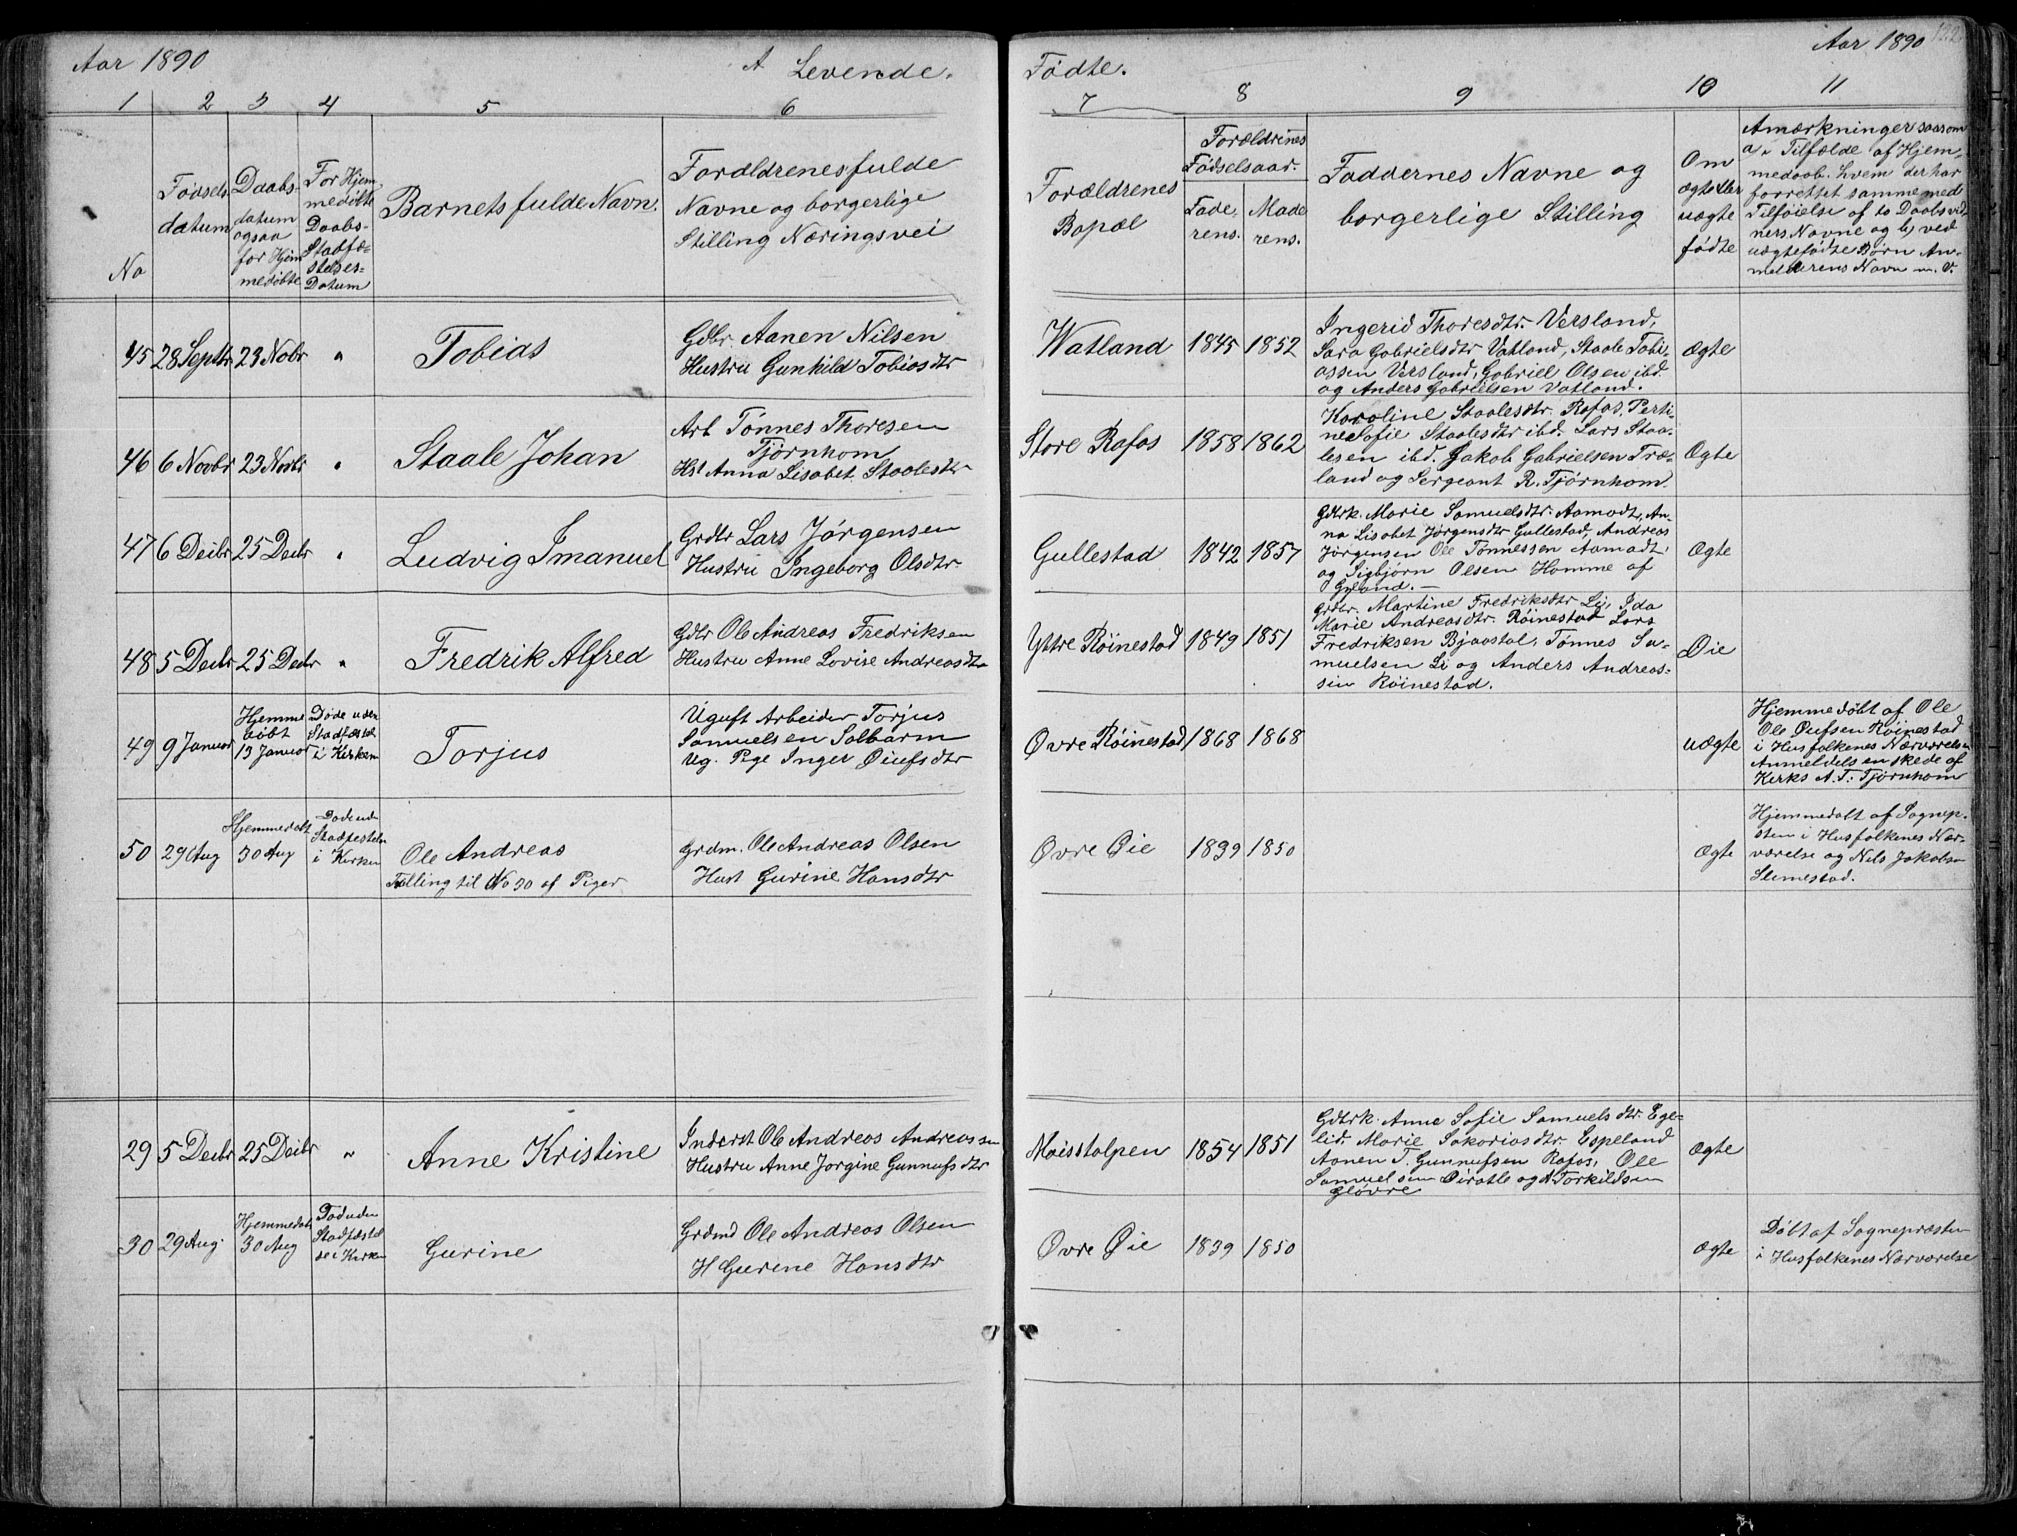 Aar 1890
A Levende.
Fødte.
Aar 1890
122
1 2 3 4 5 6
7 8 9 10 11
No
Fødsels-
datum
Daabs-
datum
ogsaa
for Hjem
medøbte
For Hjem
medøbte
Daabs-
Stadfæ-
stelses-
Datum
Barnets fulde Navn.
Forældrenes fulde
Navne og borgerlige
Stilling Næringsvei
Forældrenes
Bopæl
Forældrenes
Fødselsaar.
Fade-
rens.
Mode
rens.
Faddernes Navne og
borgerlige Stilling
Om
ægte eller
uægte
fødte
Amærkninger saasom
a. Tilfælde af Hjem-
medaab. hvem der har
forrettet samme med
Tilføielse af to Daabsvid-
ners Navne og b, ved
uægtefødte Børn An-
melderens Navn m. V.
45 28 Septbr 23 Nobr "
Tobias
Gdbr Aanen Nilsen
Hustru Gunhild Tobiasdtr
Watland 1845 1852
Ingerid Thoresdtr. Versland,
Sara Gabrielsdtr Vatland, Staale Tobi-
assen Versland, Gabriel Olsen ibd.
og Anders Gabrielsen Vatland.
Ægte
46 6 Novbr 23 Novbr "
Staale Johan
Arb Tønnes Thoresen
Tjørnhom
Hst Anna Lisabet Staalesdtr
Store Rafos 1858 1862
Karoline Staalesdtr. Rafos, Perti-
ne Sofie Staalesdtr ibd. Lars Staa-
lesen ibd. Jakob Gabrielsen Træ-
land og Sergeant R. Tjørnhom.
Ægte
47 6 Decbr 25 Decbr "
Ludvig Imanuel
Grdbr Lars Jørgensen
Hustru Ingeborg Olsdtr
Gullestad 1842 1857
Gdbrk. Marie Samuelsdtr. Aamodt, An-
na Lisabet Jørgensdtr Gullestad, Andreas
Jørgensen Ole Tønnessen Aamodt,
og Sigbjørn Olsen Homme af
Gyland.—
Ægte
48 5 Decbr 25 Decbr "
Fredrik Alfred
Gdbr Ole Andreas Fredriksen
Hustru Anne Lovise Andreasdtr
Yttre Röinestad 1849 1851
Grdbr. Martine Fredriksdtr Li, Ida
Marie Andreasdtr. Röinestad Lars
Fredriksen Bjaastal, Tønnes Sa-
muelsen Li og Anders Andreas-
sen Röinestad.
Øie
49 9 Januar
Hjemme
døbt
13 Januar
Døde uden
Stadfæstel.
i Kirken
Torjus
Ugift Arbeider Torjus
Samuelsen Salbarm
Ug. Pige Inger Øiufsdtr
Øvre Röinestad 1868 1868
uægte
Hjemmedøbt af Ole
Ole Øiufsen Röinestad
i Husfolkenes Nærværelse
Anmeldelsen skede af
Kirks A. T. Tjørnhom
50 29 Aug
Hjemmedøbt
30 Aug
Død uden
Stadfestelse
i Kirken
Ole Andreas
Tvilling til No 30 af Piger
Grdm. Ole Andreas Olsen
Hust Gurine Hansdtr
Øvre Øie 1839 1850
Ægte
Hjemmedøbt af Sognep.
sten i Husfolkenes Nær-
værelse og Nils Jakobsen
Slimestad.
29 5 Decbr 25 Decbr "
Anne Kristine
Inderst Ole Andreas Andreassen
Hustru Anne Jorgine Gunnufsdtr
Moisstolpen 1854 1851
Gdbrk. Anne Sofie Samuelsdtr. Ege-
lid, Marie Sakariasdtr. Espeland
Aanen T. Gunnufsen Rafos, Ole
Samuelsen og A Torkildsen
Gløvre
Ægte
30 29 Aug.
Hjemmedøbt
30 Aug
Død uden
Stadfæstel
se i Kirken
Gurine
Grdmd Ole Andreas Olsen
H Gurine Hansdtr
Øvre Øie 1839 1850
ægte
Døbt af Sognepræsten
i Husfolkenes Nærværelse